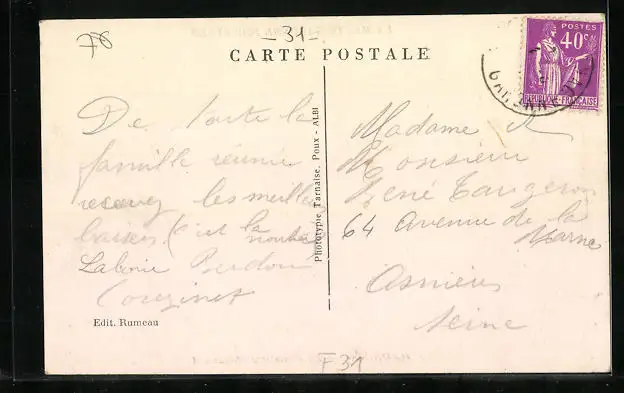 78
-31-
CARTE POSTALE
POSTES
40c
REPUBLIQUE FRANÇAISE
De toute la
famille réunie
recevez les meilleurs
baisers (c'est la
Phototypie Tarnaise, Poux - ALBI
Edit. Rumeau
Madame &
Monsieur
René
64 avenue de la
Marne
Asnières
Seine
F31